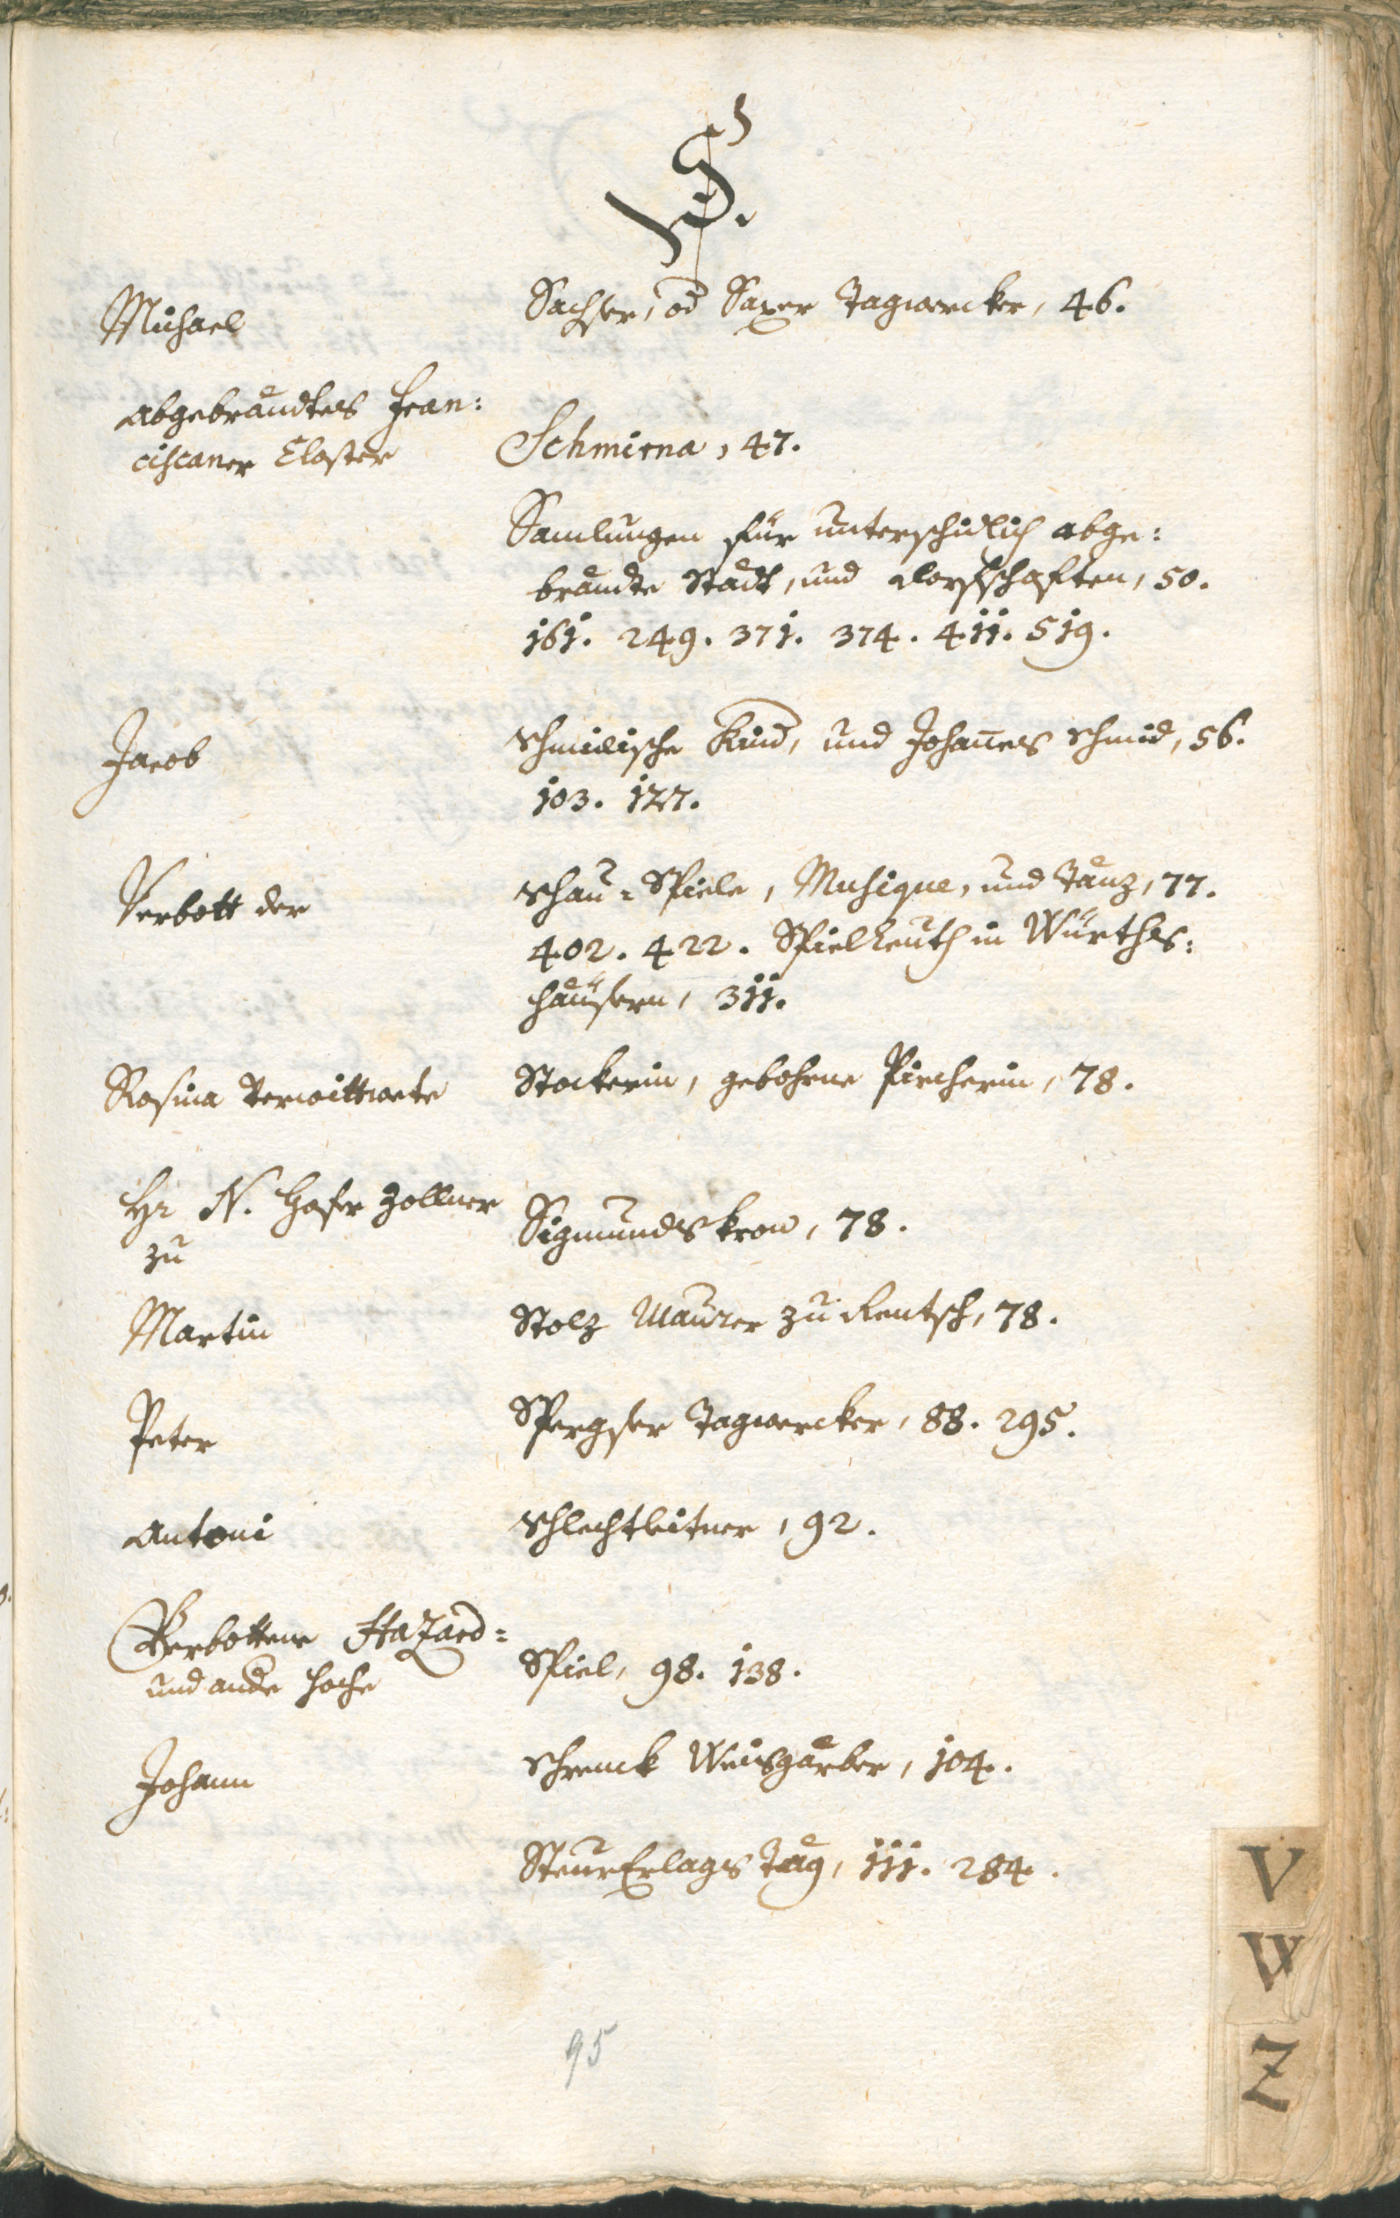 S.
Michael
Sachser, od Saxer Tagwercker, 46.
abgebrandtes Fran:
ciscaner Closter
Schmirna, 47.
Samlungen für unterschidlich abge:
brandte Städt, und Dorfschafften, 50.
161. 249. 371. 374. 411. 519.
Jacob
Schmidische Kind, und Johannes Schmid, 56.
103. 127.
Verbott der
Schau-Spiele, Musique, und Tänz, 77.
402. 422. Spielleuth in Würths:
häusern, 311.
Rosina Verwittwete
Stockerin, gebohrne Pircherin, 78.
Hr N. Hofer Zollner
zu
Sigmundskron, 78.
Martin
Stolz Maurer zu Rentsch, 78.
Peter
Spergser Tagwercker, 88. 295.
Antoni
Schlechtleitner, 92.
Verbottene Hazard=
und andre hoche
Spiel, 98. 138.
Johann
Schrenck Weisgärber, 104.
SteurErlags Täg, 111. 284.
95
V
W
Z